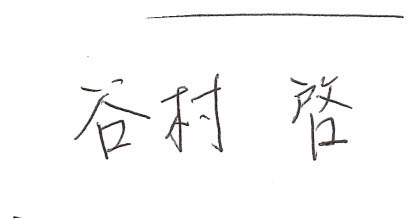 谷村 啓